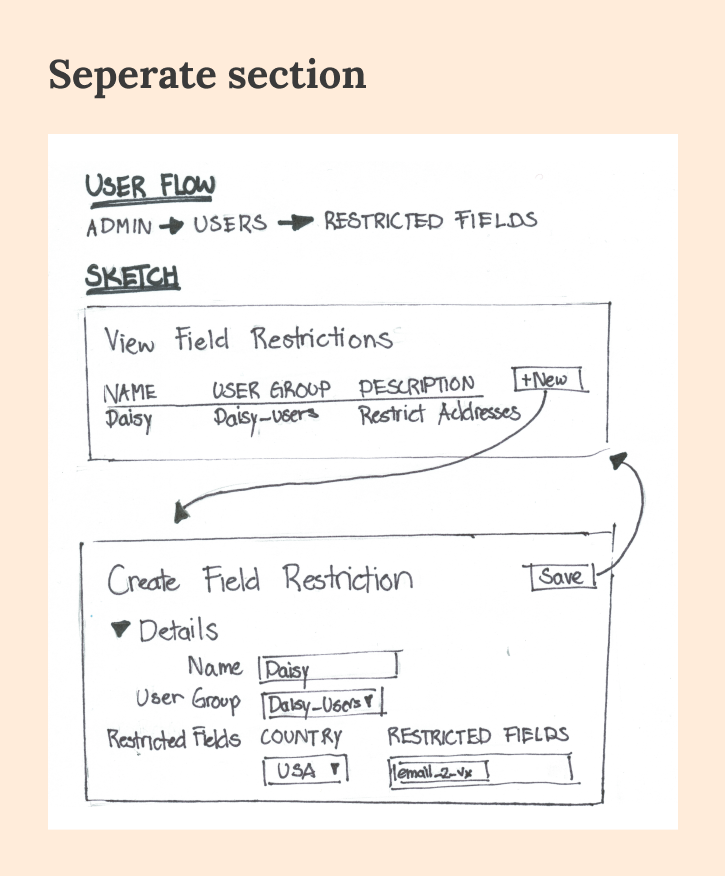 Seperate section
USER FLOW
ADMIN → USERS → RESTRICTED FIELDS
SKETCH
View Field Restrictions
+New
NAME USER GROUP DESCRIPTION
Daisy Daisy-users Restrict Addresses
Create Field Restriction Save
▼ Details
Name Daisy
User Group Daisy-Users ▼
Restricted Fields COUNTRY RESTRICTED FIELDS
USA ▼ email_2_vx